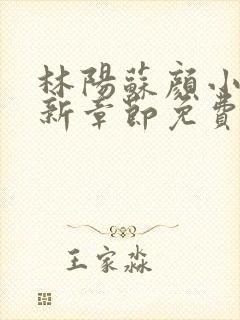 林陽蘇顏小
新章節免費
王家淼